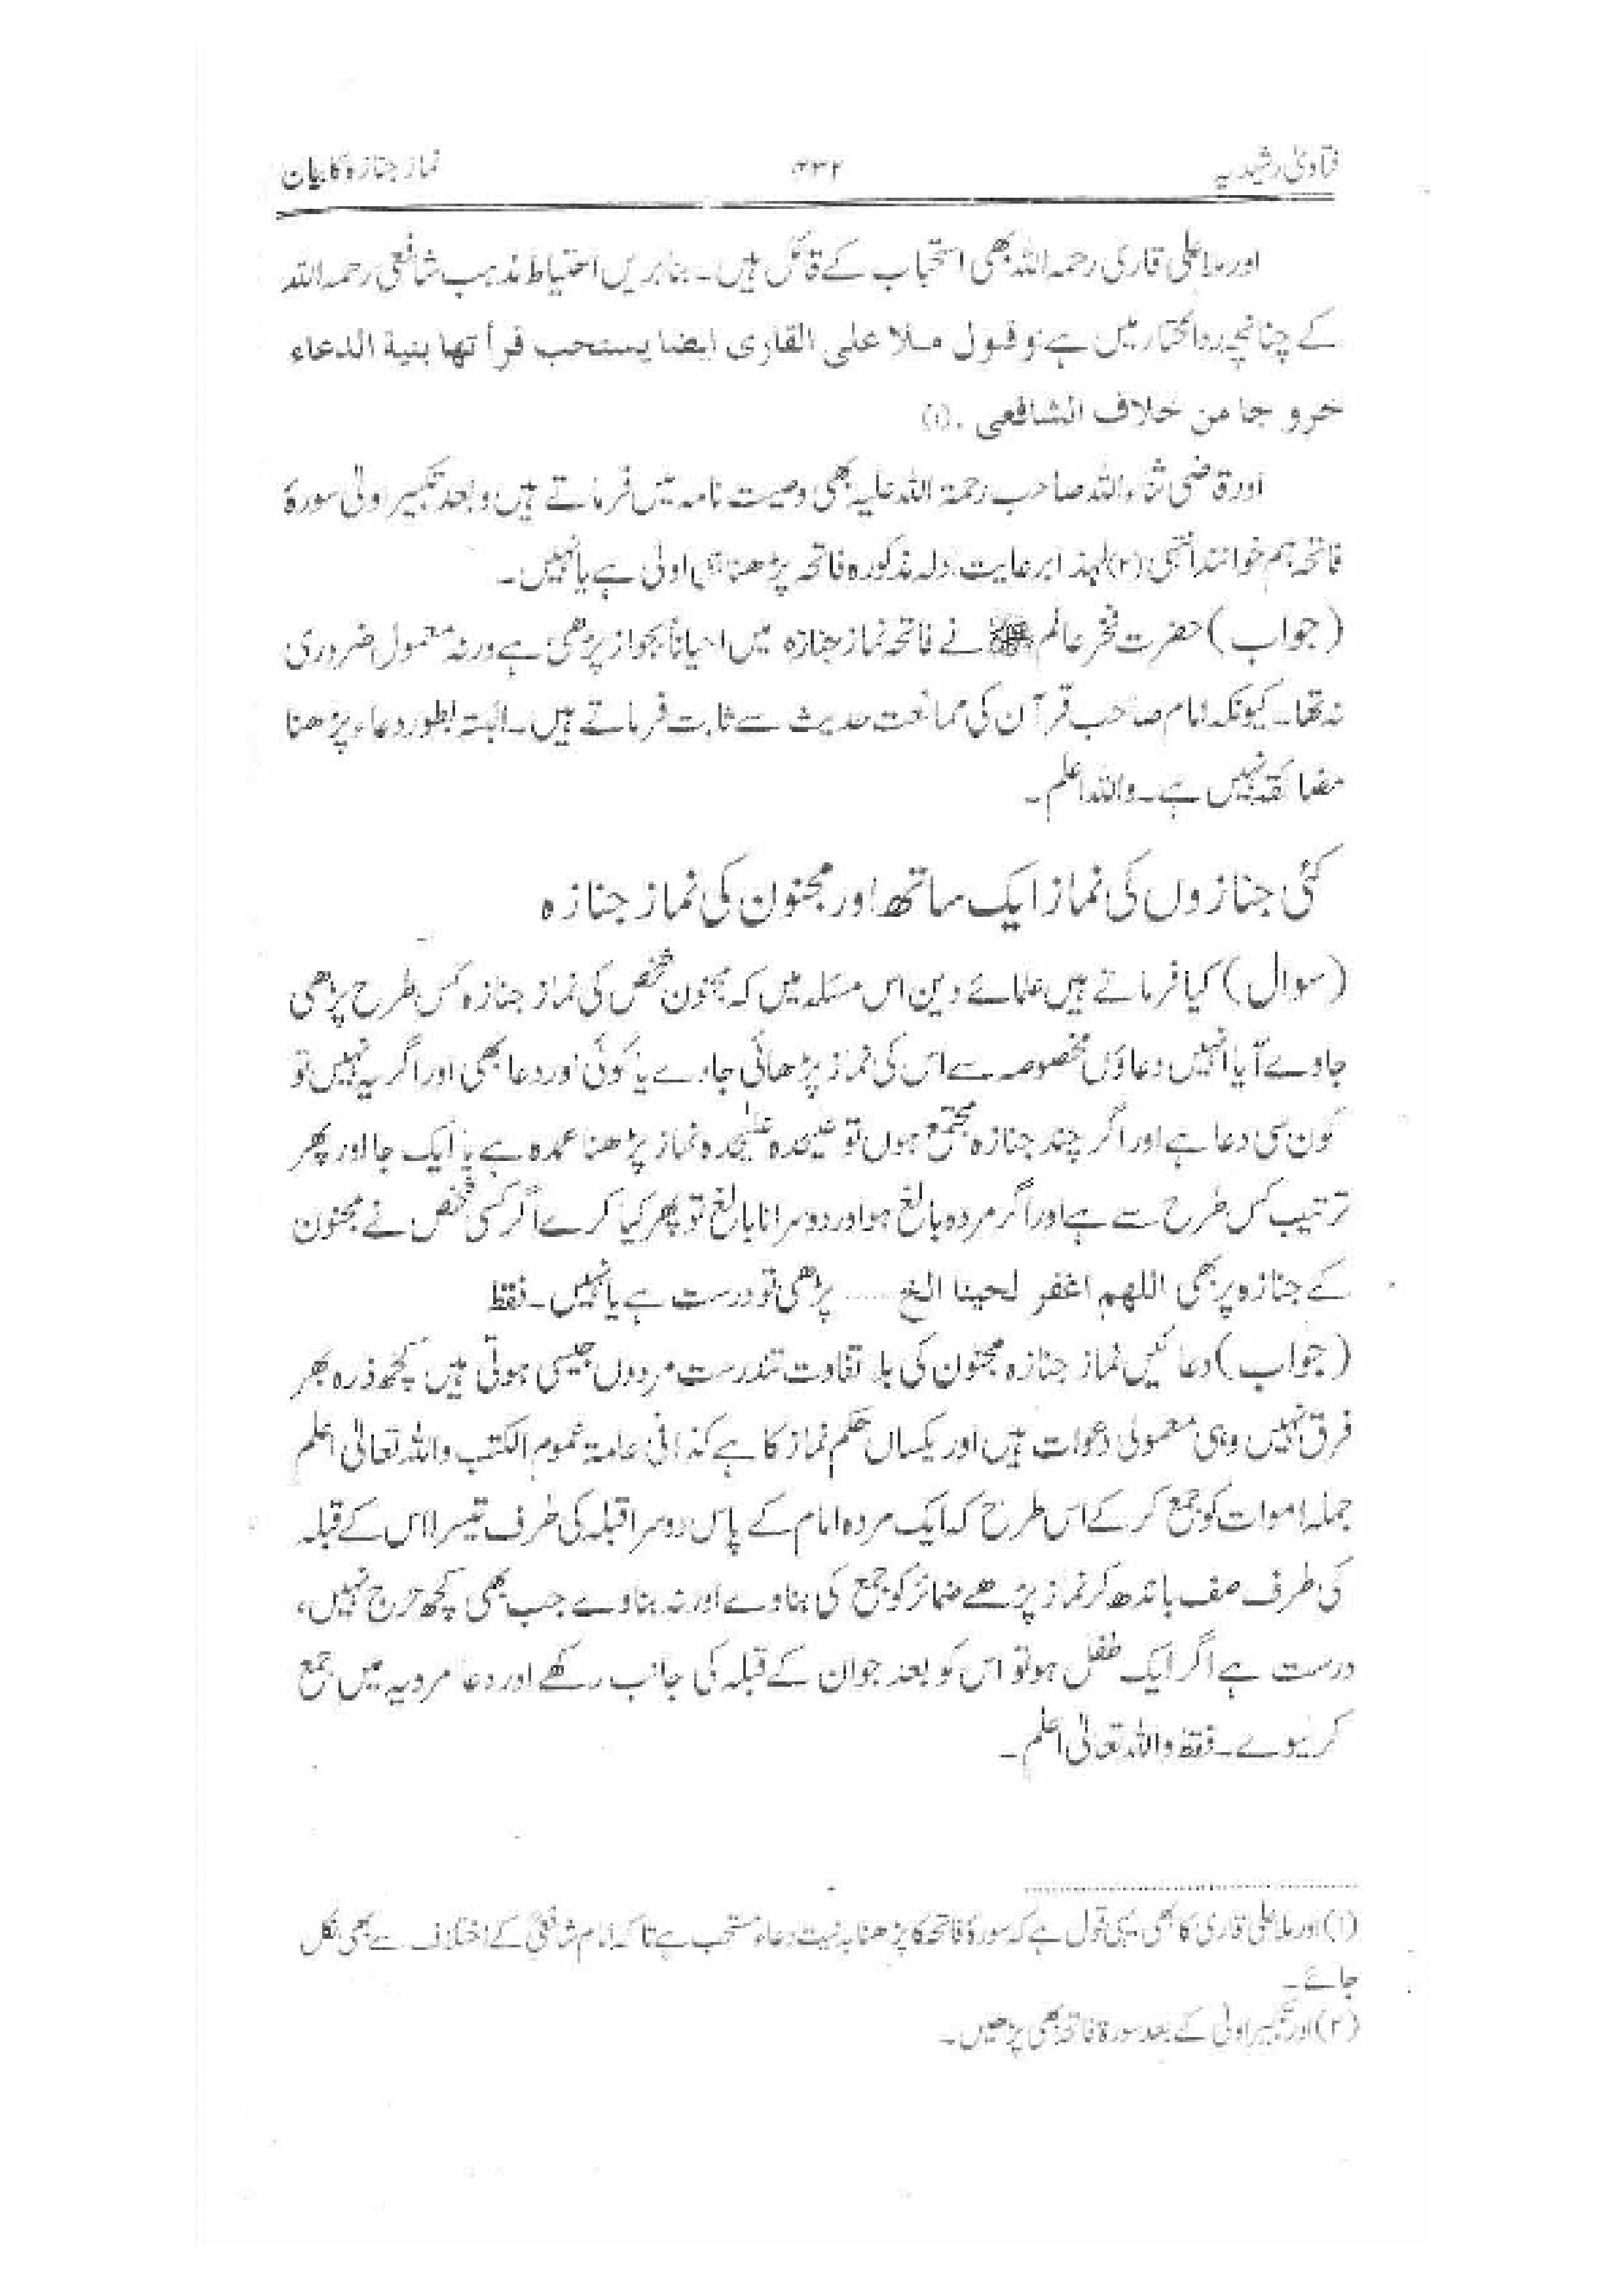 فتاویٰ رشیدیہ ۳۳۲ نماز جنازہ کا بیان
اور ملا علی قاری رحمہ اللہ بھی استحباب کے قائل ہیں۔ بنا بریں احتیاط مذہب شافعی رحمہ اللہ
کے چنانچہ ردالمختار میں ہے وقول ملا علی القاری ایضا یستحب قرأتها بنیة الدعاء
خرو جا من خلاف الشافعی .(۱)
اور قاضی ثناء اللہ صاحب رحمۃ اللہ علیہ بھی وصیت نامہ میں فرماتے ہیں و بعد تکبیر اولیٰ سورۃ
فاتحہ ہم خوانند انتہی (۲) لہذا برعایت ادلہ مذکورہ فاتحہ پڑھنا ہی اولیٰ ہے یا نہیں۔
(جواب) حضرت فخر عالم ﷺ نے فاتحہ نماز جنازہ میں احیاناً بجواز پڑھی ہے ورنہ معمول ضروری
نہ تھا۔ کیونکہ امام صاحب قرآن کی ممانعت حدیث سے ثابت فرماتے ہیں۔ البتہ بطور دعاء پڑھنا
مضائقہ نہیں ہے۔ واللہ اعلم۔
کئی جنازوں کی نماز ایک ساتھ اور مجنون کی نماز جنازہ
(سوال) کیا فرماتے ہیں علمائے دین اس مسئلہ میں کہ مجنون شخص کی نماز جنازہ کس طرح پڑھی
جاوے آیا انہیں دعاؤں مخصوصہ سے اس کی نماز پڑھائی جاوے یا کوئی اور دعا بھی اور اگر یہ نہیں تو
کون سی دعا ہے اور اگر چند جنازہ مجتمع ہوں تو علیٰحدہ علیٰحدہ نماز پڑھنا عمدہ ہے یا ایک جا اور پھر
ترتیب کس طرح سے ہے اور اگر مردہ بالغ ہو اور دوسرا نابالغ تو پھر کیا کرے اگر کسی شخص نے مجنون
کے جنازہ پر بھی اللهم اغفر لحینا الخ ...... پڑھی تو درست ہے یا نہیں۔ فقط
(جواب) دعائیں نماز جنازہ مجنون کی بلا تفاوت تندرست مردوں جیسی ہوتی ہیں کچھ ذرہ بھر
فرق نہیں وہی معمولی دعوات ہیں اور یکساں حکم نماز کا ہے کذافی عامۃ عموم الکتب واللہ تعالیٰ اعلم
جملہ اموات کو جمع کر کے اس طرح کہ ایک مردہ امام کے پاس دوسرا قبلہ کی طرف تیسرا اس کے قبلہ
کی طرف صف باندھ کر نماز پڑھے ضمائر کو جمع کی بناوے اور نہ بناوے جب بھی کچھ حرج نہیں،
درست ہے اگر ایک طفل ہو تو اس کو بعد جوان کے قبلہ کی جانب رکھے اور دعا مرویہ میں جمع
کر لیوے۔ فقط واللہ تعالیٰ اعلم۔
(۱) اور ملا علی قاری کا بھی یہی قول ہے کہ سورۂ فاتحہ کا پڑھنا بہ نیت دعاء مستحب ہے تاکہ امام شافعیؒ کے اختلاف سے بھی نکل
جائے۔
(۲) اور تکبیر اولیٰ کے بعد سورۃ فاتحہ بھی پڑھیں۔